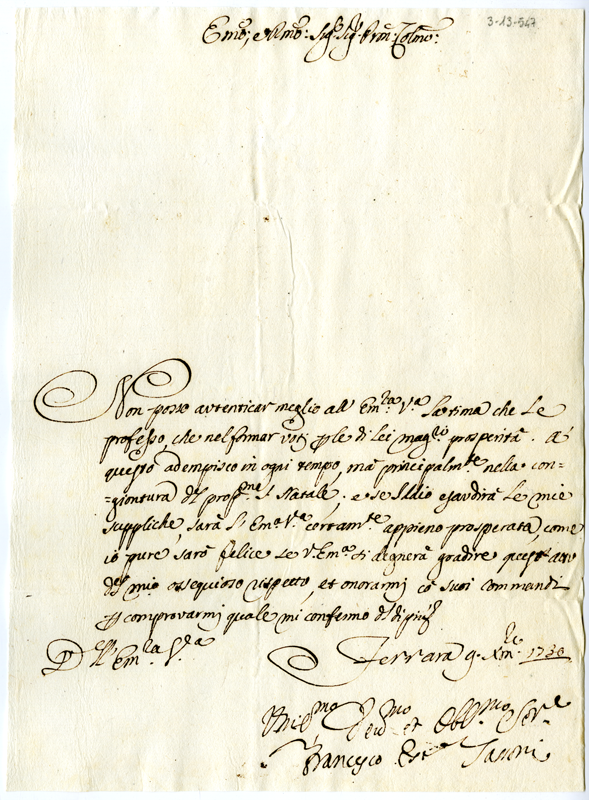 3-13-547
Emo, e Rmo: Sigr Sigr Pron: Colmo:
Non posso autenticar meglio all' Emza Va la stima che Le
professo, che nel formar voti p le di Lei maggri prosperità. A
questo adempisco in ogni tempo, ma principalmte nella con=
=giontura del prossme SS Natale; e se Iddio esaudirà Le mie
suppliche, sarà l' Ema Va certamte appieno prosperata, come
io pure sarò felice se V. Ema si degnerà gradire questo atto
del mio ossequioso rispetto, et onorarmi co suoi commandi
p comprovarmi quale mi confermo
Dell' Emza Va
Ferrara 9. Xmbre 1730
Umilmo Devmo et Obblmo Serre
Francesco Este Tassoni